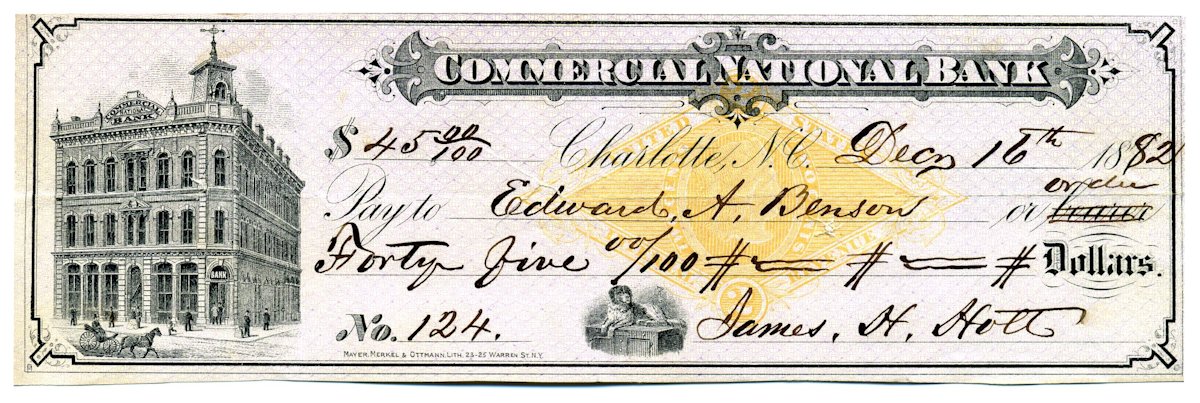 COMMERCIAL NATIONAL BANK
COMMERCIAL NATIONAL BANK
$ 45 00/100 Charlotte, N.C. Decr 16th 1882
order
Pay to Edward. A. Benson or
Forty five 00/100 $ — $ — $ Dollars.
BANK
UNITED STATES
No. 124. James. H. Hott
MAYER, MERKEL & OTTMANN, LITH. 23-25 WARREN ST. N.Y.